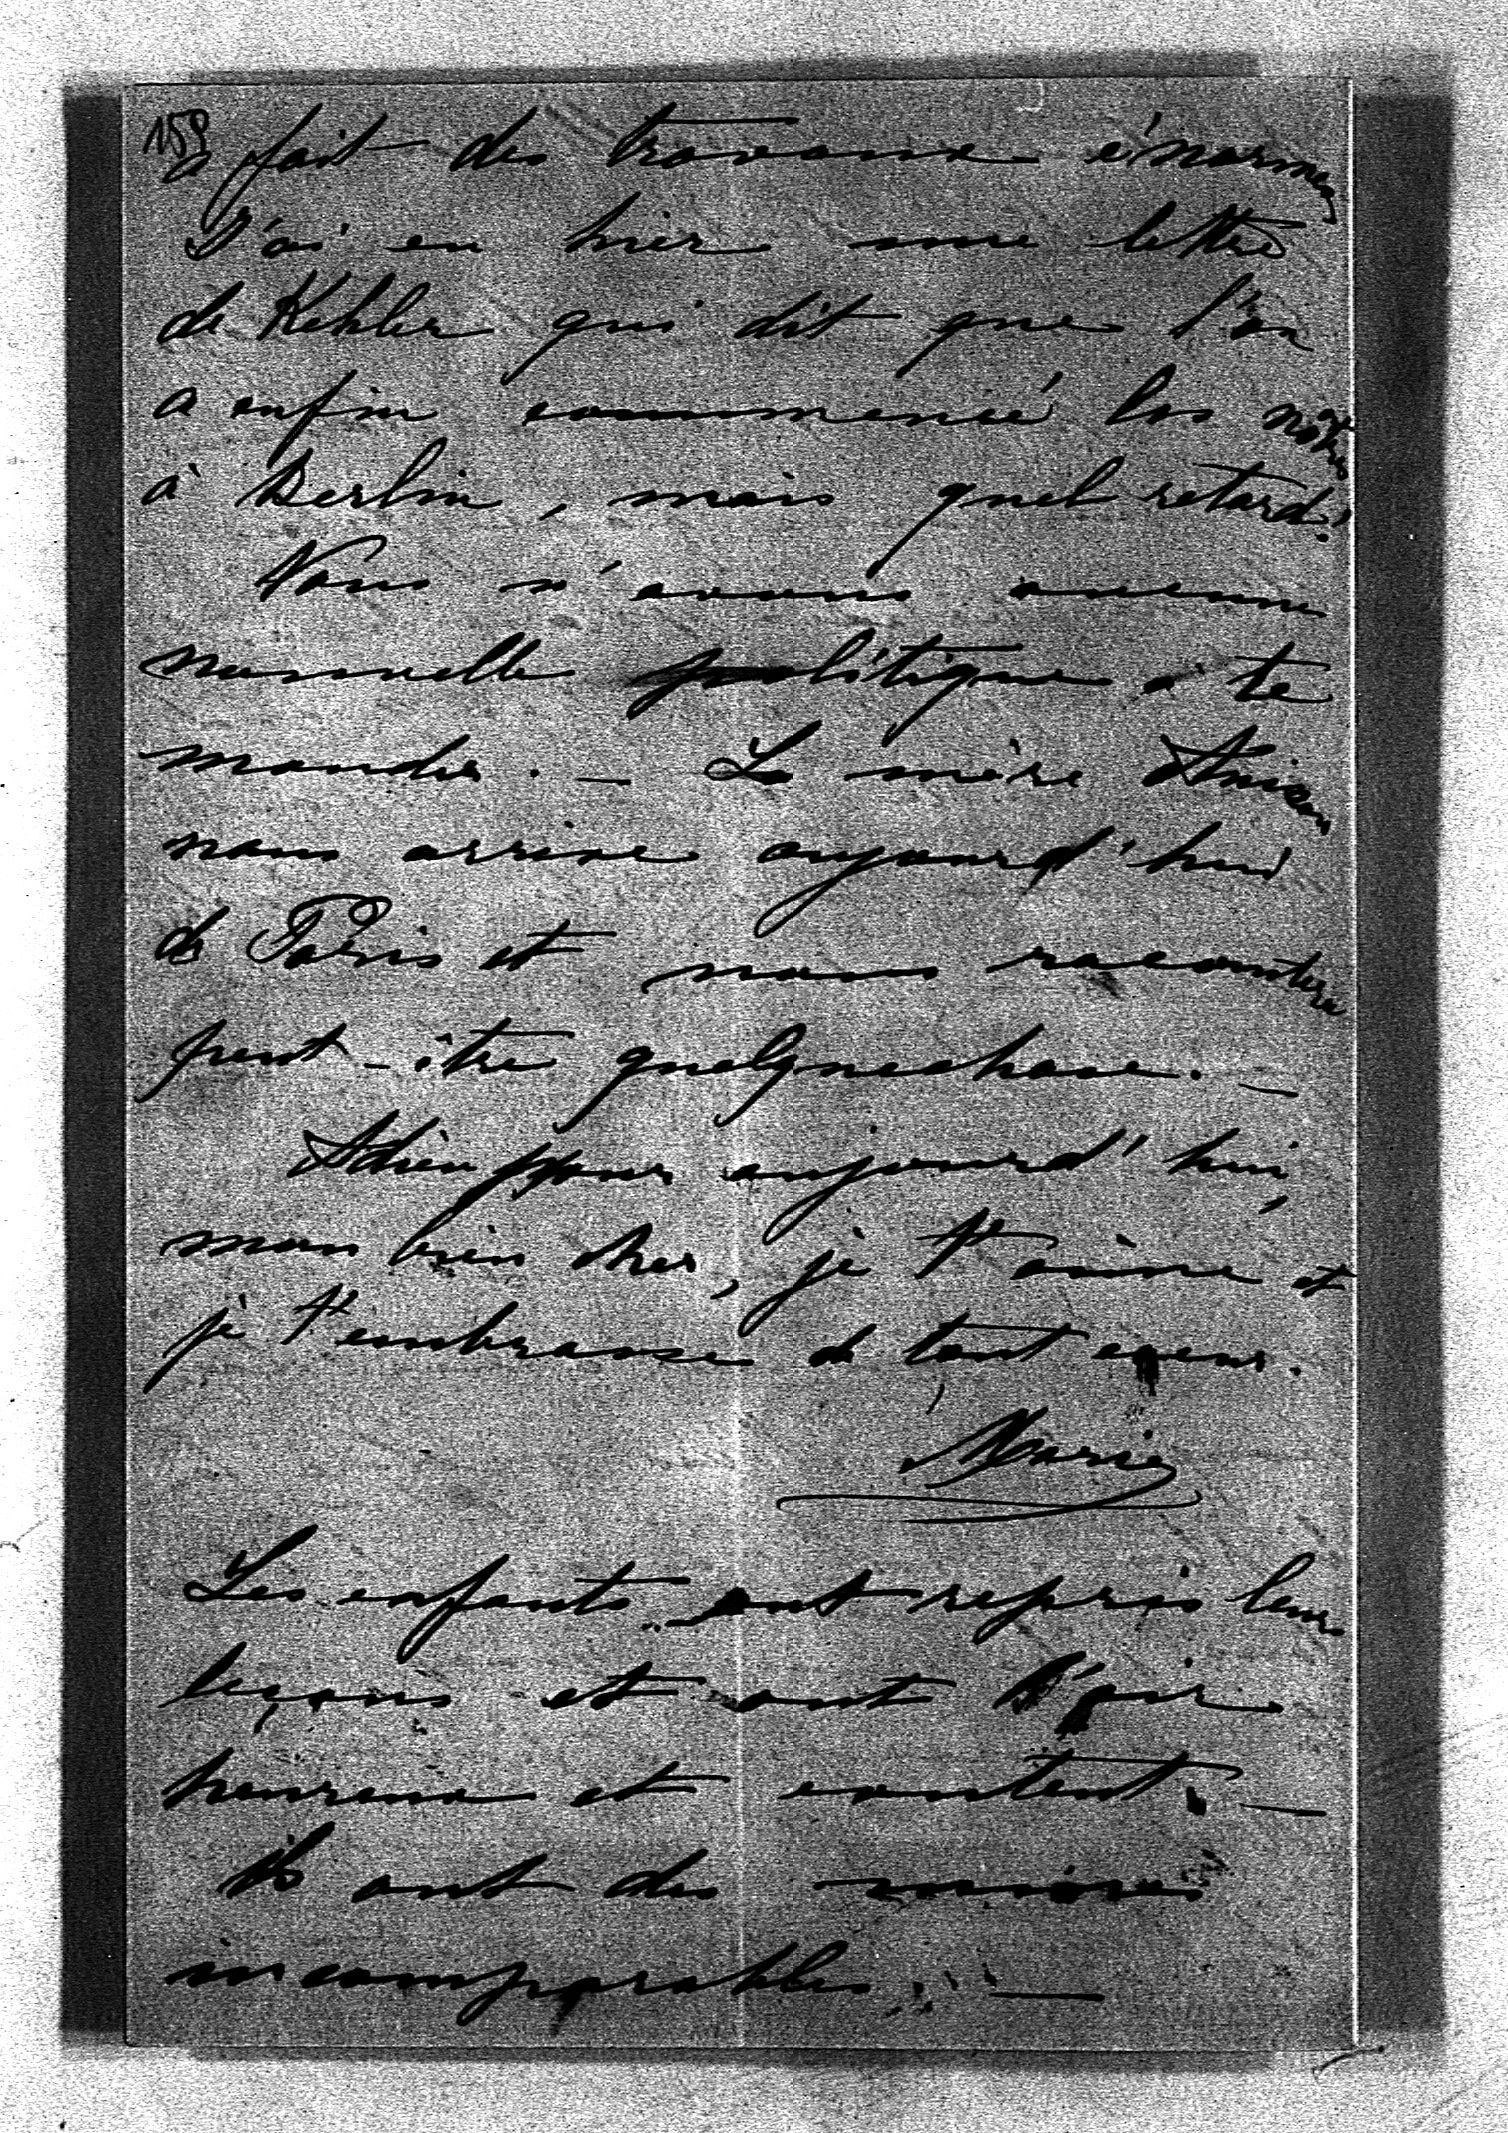 159
a fait des travaux énormes
J'ai eu hier une lettre
de Kehler qui dit que l'on
a enfin commencé les
à Berlin, mais quel retard!
Nous n'avons aucune
nouvelle politique à te
mander. — La mère
nous arrive aujourd'hui
de Paris et nous racontera
peut-être quelquechose. —
Adieu pour aujourd'hui,
mon bien cher, je t'aime et
je t'embrasse de tout coeur.
Marie
Les enfants ont repris leurs
leçons et ont l'air
heureux et content. —
Ils ont des mines
incomparables. —